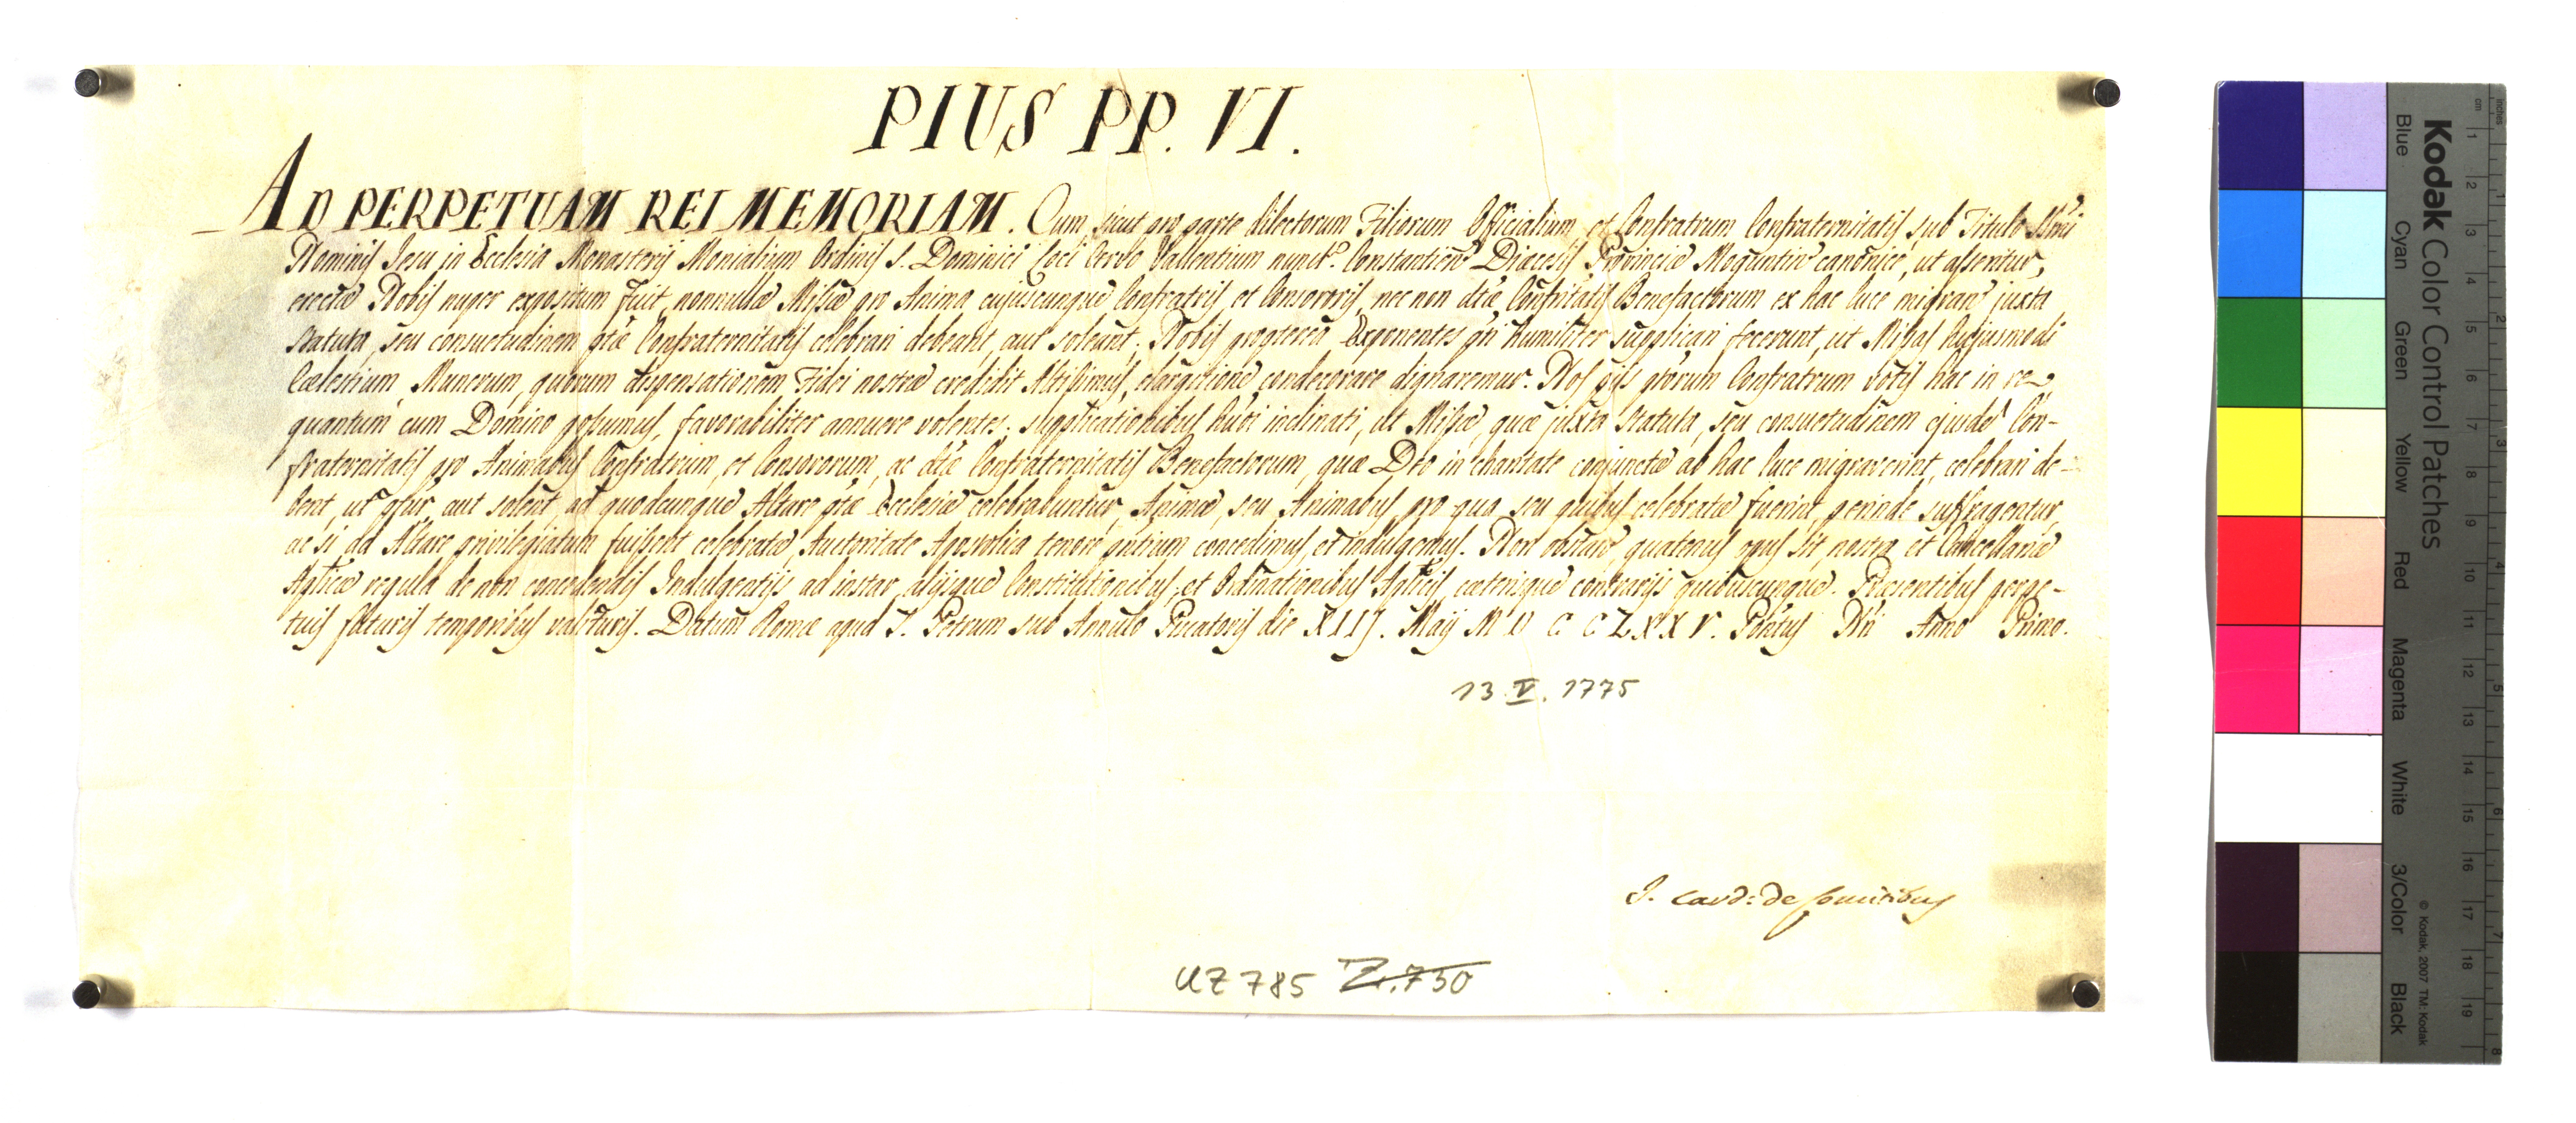 PIUS PP. VI.
AD PERPETUAM REI MEMORIAM. Cum sicut pro parte dilectorum Filiorum Officialium, et Confratrum Confraternitatis sub Titulo Smi
Nominis Jesu in Ecclesia Monasterij Monialium Ordinis S. Dominici Loci Vallentium nunct. Constantien Diæcesis Provinciæ Moguntin canonice, ut asseritur,
erectæ Nobis nuper expositum fuit, nonnullæ Missæ pro Anima cujuscunque Confratris, et Consororis, nec non dtæ Confritatis Benefactorum ex hac luce migran juxta
statuta, seu consuetudinem ptæ Confraternitatis celebrari debeant, aut soleant; Nobis propterea Exponentes pñ humiliter supplicari fecerunt, ut Missas hujusmodi
Cœlestium Munerum, quorum dispensationem Fidei nostræ credidit Altissimus, elargitione condecorare dignaremur. Nos piis ptorum Confratrum votis hac in re
quantum cum Domino possumus, favorabiliter annuere volentes, supplicationibus huõi inclinati, ut Missæ, quæ juxta statuta, seu consuetudinem ejusd Con-
fraternitatis pro Animabus Confratrum, et Consororum, ac dtæ Confraternitatis Benefactorum, quæ Deo in charitate conjunctæ ab hac luce migraverint, celebrari de-
bent, ut pfur, aut solent, ad quodcunque Altare ptæ Ecclesiæ celebrabuntur, Animæ, seu Animabus, pro qua, seu quibus celebratæ fuerint, perinde suffragentur,
ac si ad Altare privilegiatum fuissent celebratæ, Auctoritate Apostolica tenore pntium concedimus, et indulgemus. Non obstan, quatenus opus sit, nostra et Cancellariæ
Aplicæ regula de non concedendis Indulgentijs ad instar, alijsque Constitutionibus, et Ordinationibus Aplicis, cæterisque contrarijs quibuscunque. Præsentibus perpe-
tuis futuris temporibus valituris. Datum Romæ apud S. Petrum sub Annulo Piscatoris die XIIJ. Maij MDCCLXXV. Pontus Nri Anno Primo.
13 V. 1775
J. Card: de Comitibus
UZ 785 Z. 730
Kodak Color Control Patches
Blue Cyan Green Yellow Red Magenta White 3/Color Black
© Kodak, 2007 TM: Kodak
cm 1 2 3 4 5 6 7 8 9 10 11 12 13 14 15 16 17 18 19
inches 1 2 3 4 5 6 7 8